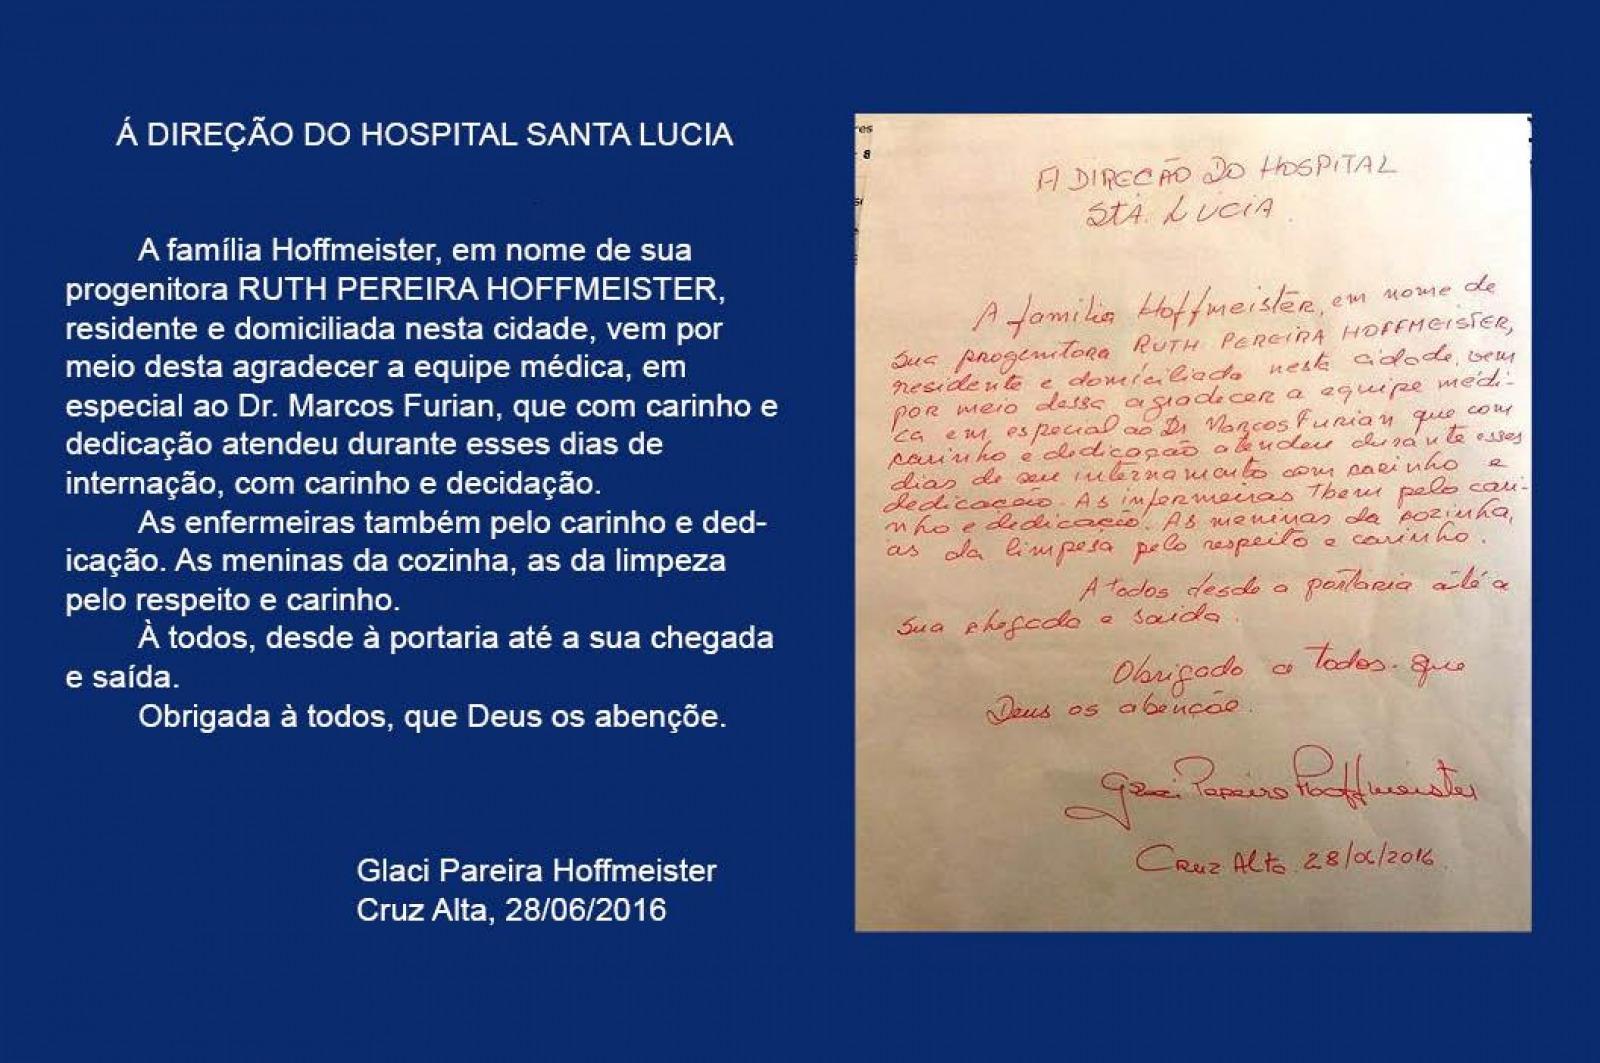 Á DIREÇÃO DO HOSPITAL SANTA LUCIA
A família Hoffmeister, em nome de sua
progenitora RUTH PEREIRA HOFFMEISTER,
residente e domiciliada nesta cidade, vem por
meio desta agradecer a equipe médica, em
especial ao Dr. Marcos Furian, que com carinho e
dedicação atendeu durante esses dias de
internação, com carinho e decidação.
As enfermeiras também pelo carinho e ded-
icação. As meninas da cozinha, as da limpeza
pelo respeito e carinho.
À todos, desde à portaria até a sua chegada
e saída.
Obrigada à todos, que Deus os abençõe.
Glaci Pareira Hoffmeister
Cruz Alta, 28/06/2016
es
8
A DIREÇÃO DO HOSPITAL
STA. LUCIA.
A família Hoffmeister, em nome de
sua progenitora RUTH PEREIRA HOFFMEISTER,
residente e domiciliada nesta cidade, vem
por meio dessa agradecer a equipe médi-
ca em especial ao Dr Marcos Furian que com
carinho e dedicação atendeu durante esses
dias de seu internamento com carinho e
dedicação. As infermeiras tbem pelo cari-
nho e dedicação. As meninas da cozinha,
as da limpesa pelo respeito e carinho.
A todos desde a portaria até a
sua chegada e saída.
Obrigado a todos. que
Deus os abenção.
Glaci Pereira Hoffmeister
Cruz Alta 28/06/2016.